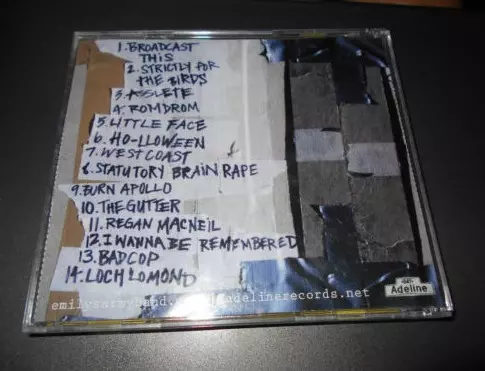 1. BROADCAST
THIS
2. STRICTLY FOR
THE BIRDS
3. ASSLETE
4. ROMDROM
5. LITTLE FACE
6. HO-LLOWEEN
7. WEST COAST
8. STATUTORY BRAIN RAPE
9. BURN APOLLO
10. THE GUTTER
11. REGAN MACNEIL
12. I WANNA BE REMEMBERED
13. BADCOP
14. LOCH LOMOND
emilysarmyband. adelinerecords.net
Adeline